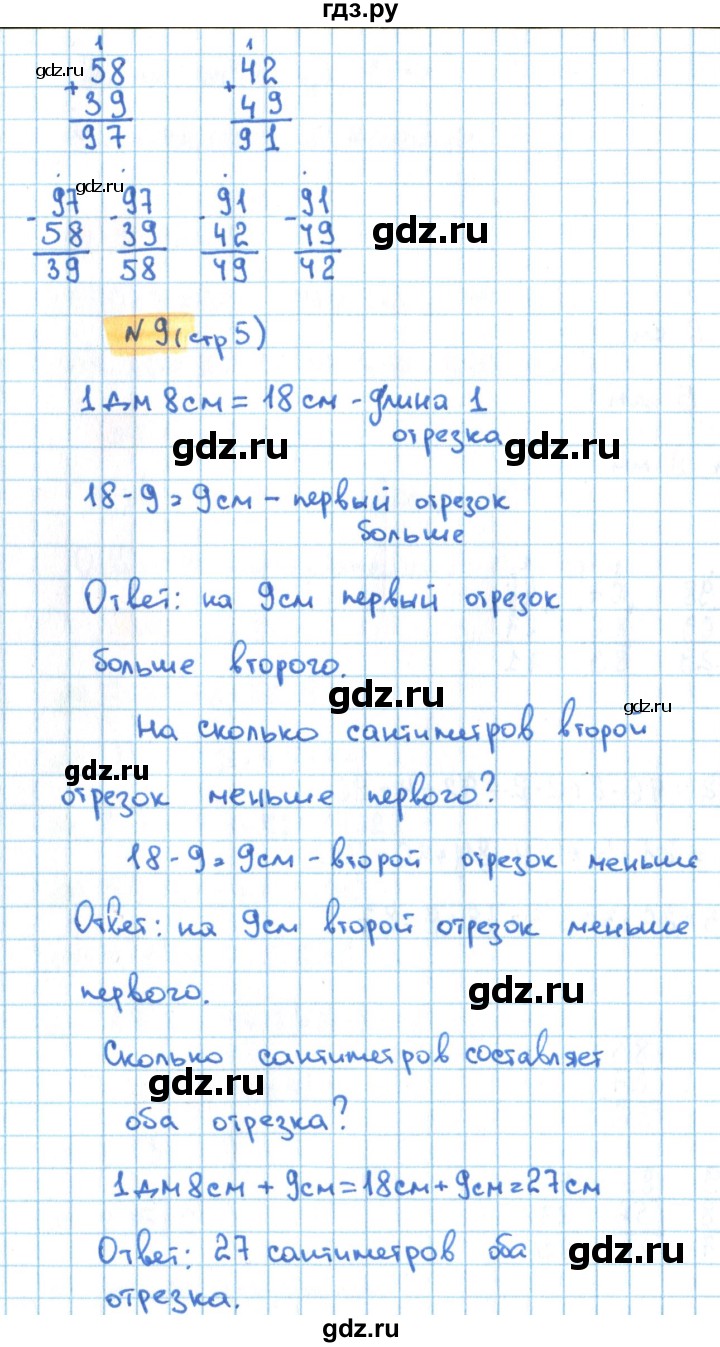 гдз.ру
1 1
gdz.ru 58 42
+ +
39 49
97 91
gdz.ru
97 97 91 91
- - - -
58 39 42 49 gdz.ru
39 58 49 42
N 9 (стр 5)
1 дм 8 см = 18 см - длина 1
отрезка
gdz.ru gdz.ru
18 - 9 = 9 см - первый отрезок
больше
Ответ: на 9 см первый отрезок
больше второго.
gdz.ru gdz.ru
На сколько сантиметров второй
gdz.ru
отрезок меньше первого?
18 - 9 = 9 см - второй отрезок меньше
Ответ: на 9 см второй отрезок меньше
первого.
gdz.ru
Сколько сантиметров составляет
gdz.ru
оба отрезка?
1 дм 8 см + 9 см = 18 см + 9 см = 27 см
Ответ: 27 сантиметров оба
gdz.ru
отрезка.
gdz.ru